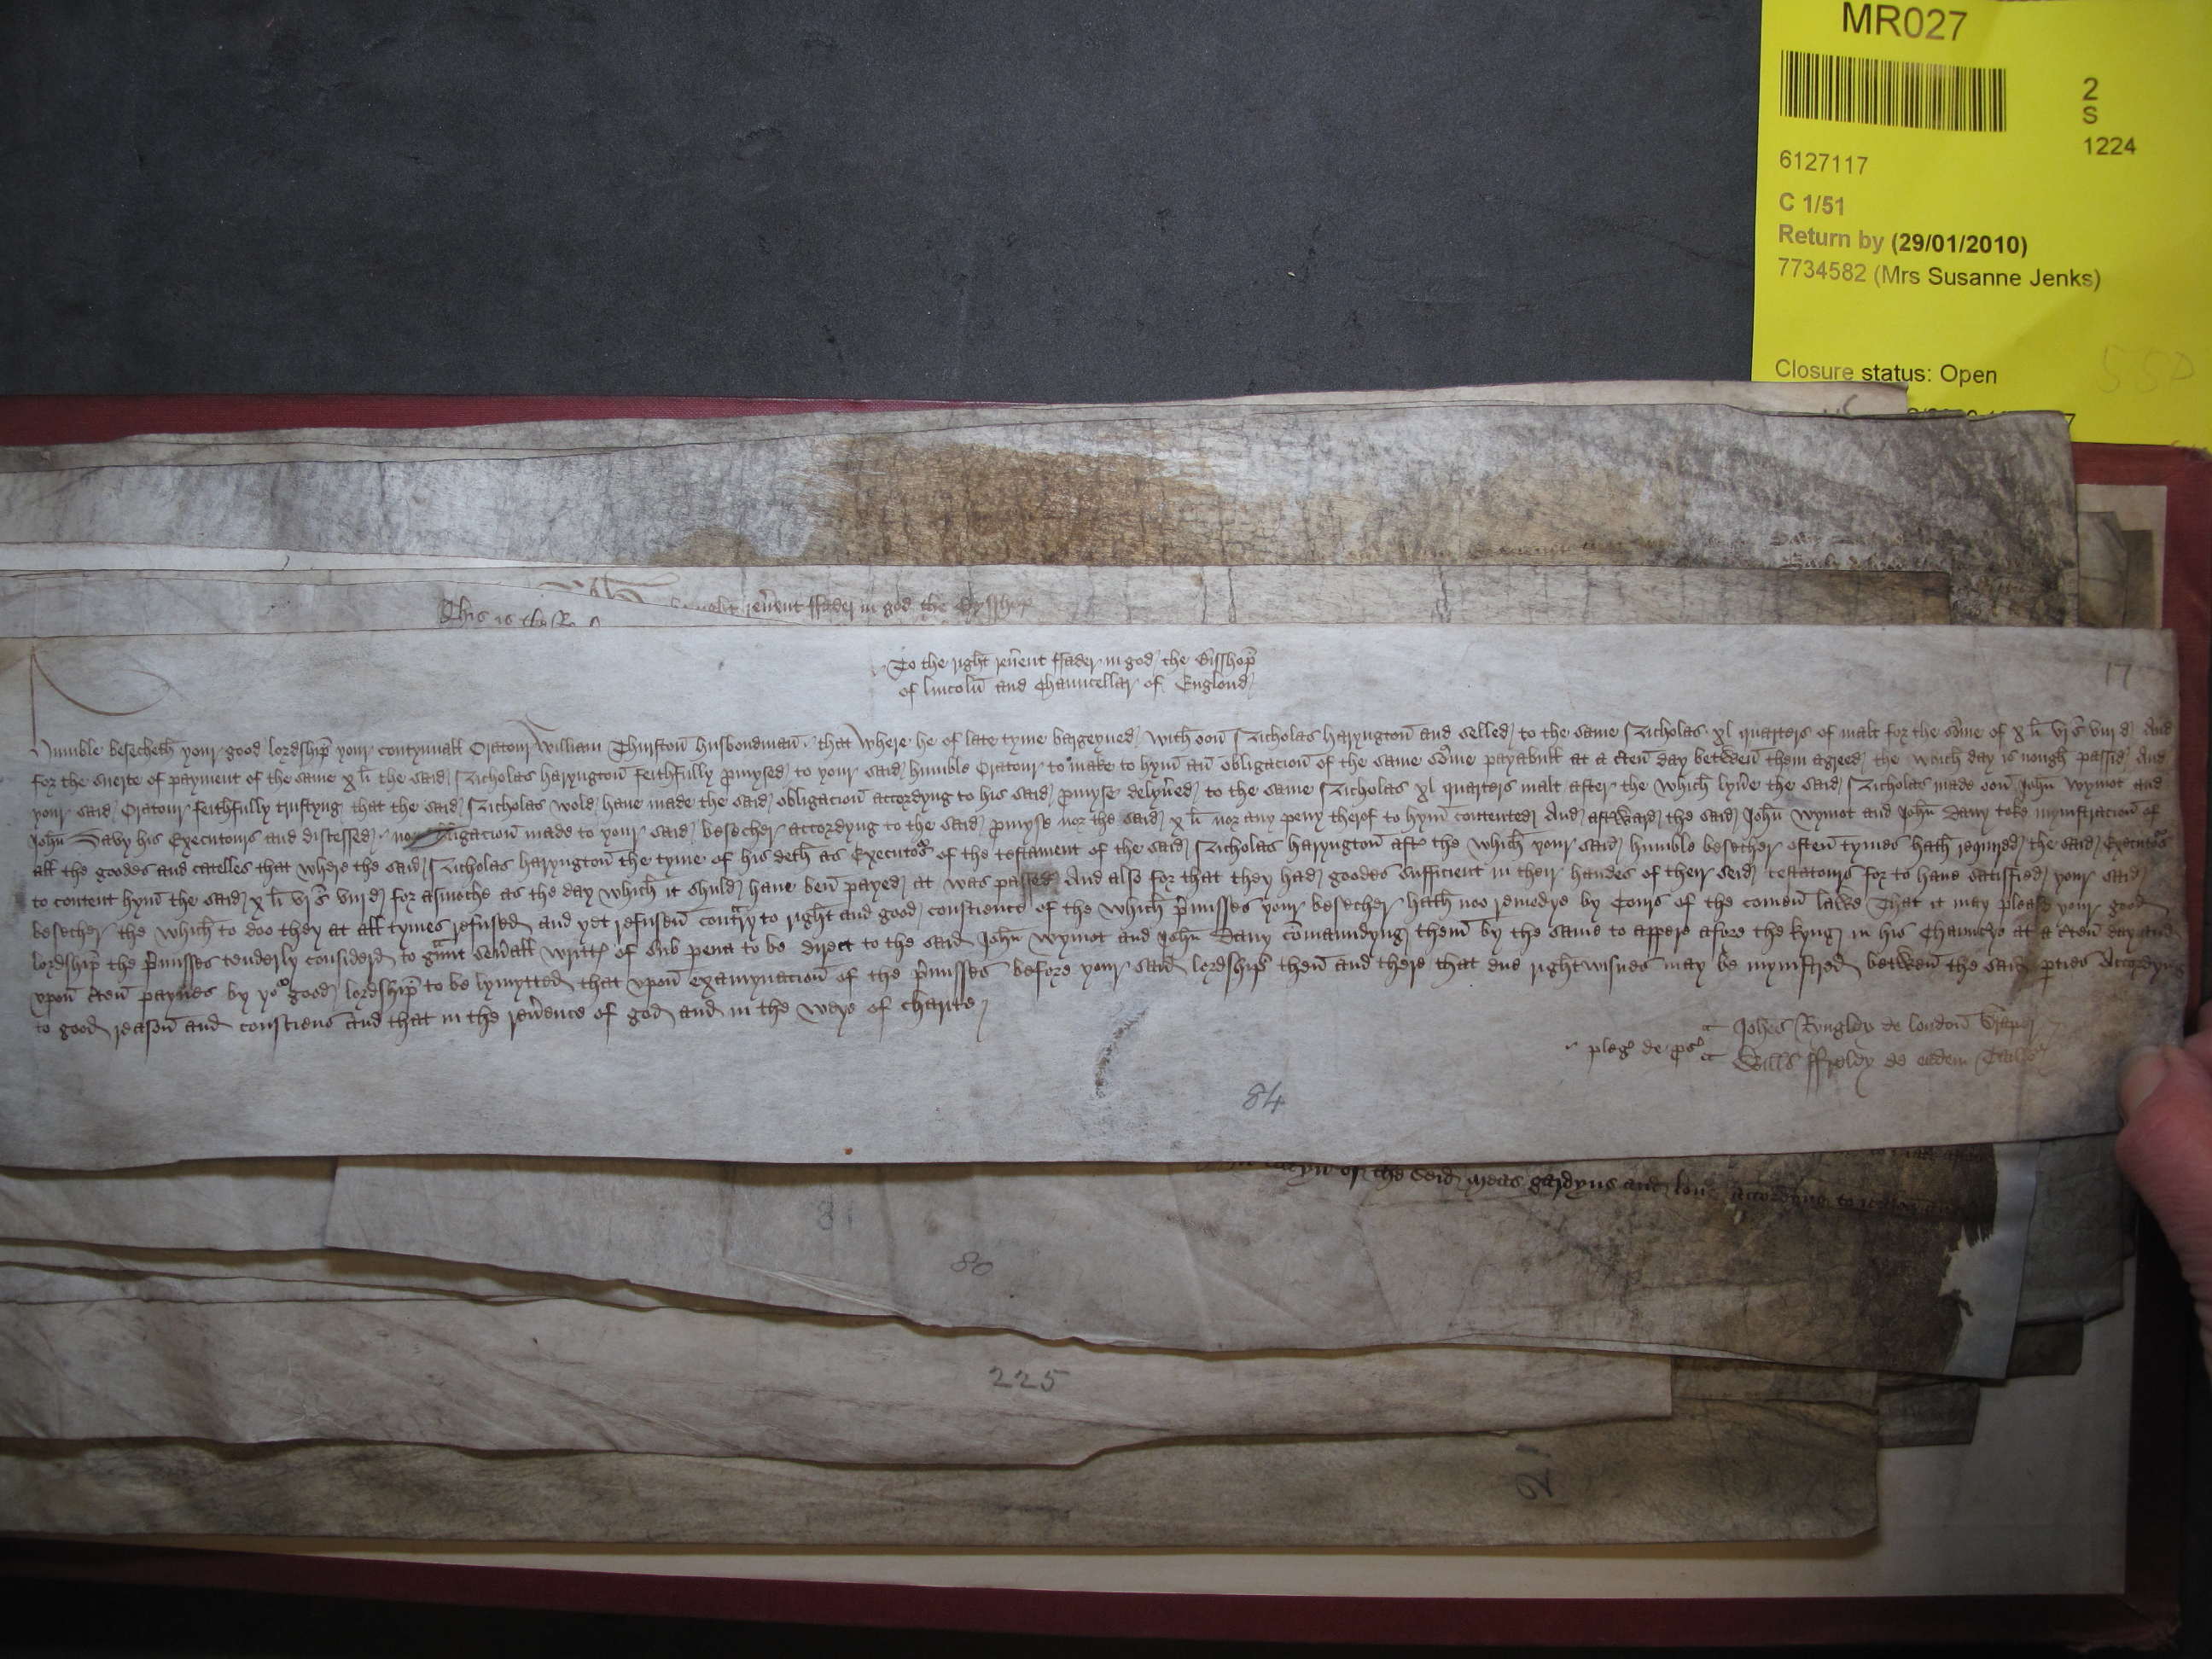 MR027
2
S
1224
6127117
C 1/51
Return by (29/01/2010)
7734582 (Mrs Susanne Jenks)
Closure status: Open
55D
reu'ent ffader in god the Bysshop
This is the
17
To the right reu'ent ffader in god the Bisshop
of Lincoln and Chauncellar of Englond
Humble besecheth your good lordship your contynuall Oratour William Thurston husbondman that where he of late tyme bargeyned with oon Nicholas Haryngton and selled to the same Nicholas xl quarters of malt for the some of x li vj s viij d And
for the suerte of payment of the same x li the said Nicholas Haryngton feithfully p'mysed to your said humble Oratour to make to hym an obligacion of the same some payabull at a c'ten day betwen them agreed the which day is nough passid And
your said Oratour feithfully trustyng that the said Nicholas wold haue made the said obligacion accordyng to his said p'myse delyu'ed to the same Nicholas xl quarters malt after the which lyu'e the said Nicholas made oon John Wymot and
John Davy his Executours and discessed no obligacion made to your said besecher accordyng to the said p'myse nor the said x li nor any peny therof to hym contented And aftward the said John Wymot and John Davy toke mynistracion of
all the goodes and catelles that where the said Nicholas Haryngton the tyme of his deth as Executors of the testament of the said Nicholas Haryngton aft' the which your said humble besecher often tymes hath required the said Executors
to content hym the said x li vj s viij d for asmoche as the day which it shuld haue ben payed at was passed And also for that they had goodes sufficient in their handes of their seid testatours for to haue satisfied your said
besecher the which to doo they at all tymes refused and yet refusen contrary to right and good conscience of the which p'misses your besecher hath noo remedye by Cours of the comen lawe That it may please your good
lordship the p'misses tenderly considerd to graunt seu'all writt' of sub pena to be direct to the said John Wymot and John Davy comaundyng them by the same to appere afore the kyng in his Chauncre at a c'ten day and
vpon c'ten paynes by yor good lordship to be lymytted that vpon examynacion of the p'misses before your said lordship then and there that due rightwisnes may be mynistred betwen the said p'ties Accordyng
to good reason and consciens And that in the reu'ence of god and in the weye of charite
pleg' de ps'
Joh'es Kyngley de london Drap'
Will's ffeldy de eadem
84
of the seid meas gardyns and lond accordyng to
81
80
225
21